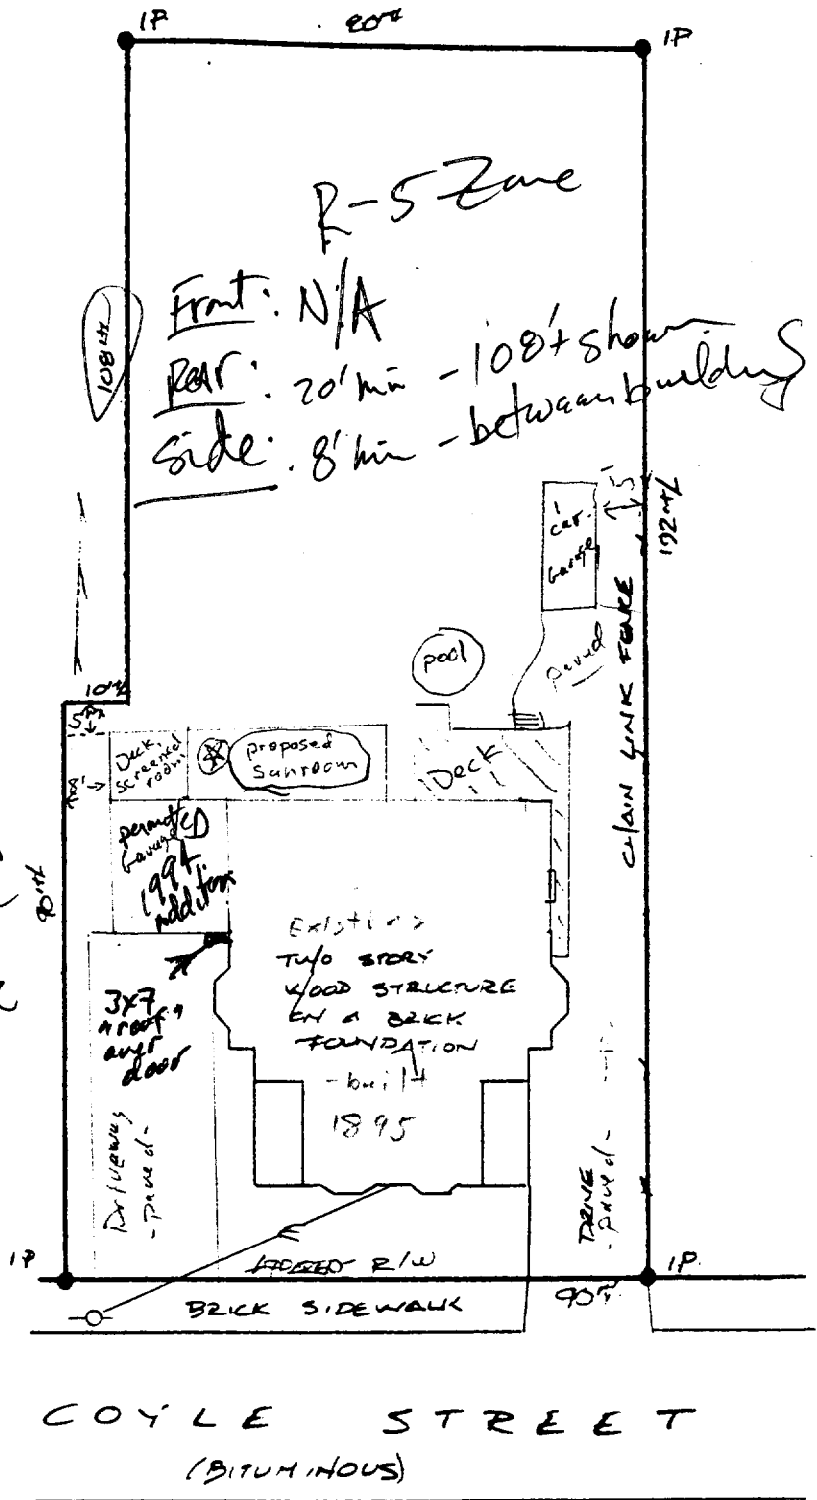 IP
80'±
IP
R-5 Zone
Front: N/A
Rear: 20' min - 108'± shown
Side: 8' min - between buildings
108'+/-
5'
192'+/-
1
car
Garage
CHAIN LINK FENCE
paved
pool
10'±
5'±
8'
Deck
screened
room
proposed
sunroom
Deck
permitted
Garage
1994
addition
90'+/-
Existing
TWO STORY
WOOD STRUCTURE
ON A BRICK
FOUNDATION
- built
1895
3x7
"roof"
over
door
Driveway
- paved -
DRIVE
- paved -
IP
R/W
IP
BRICK SIDEWALK
90'±
COYLE STREET
(BITUMINOUS)